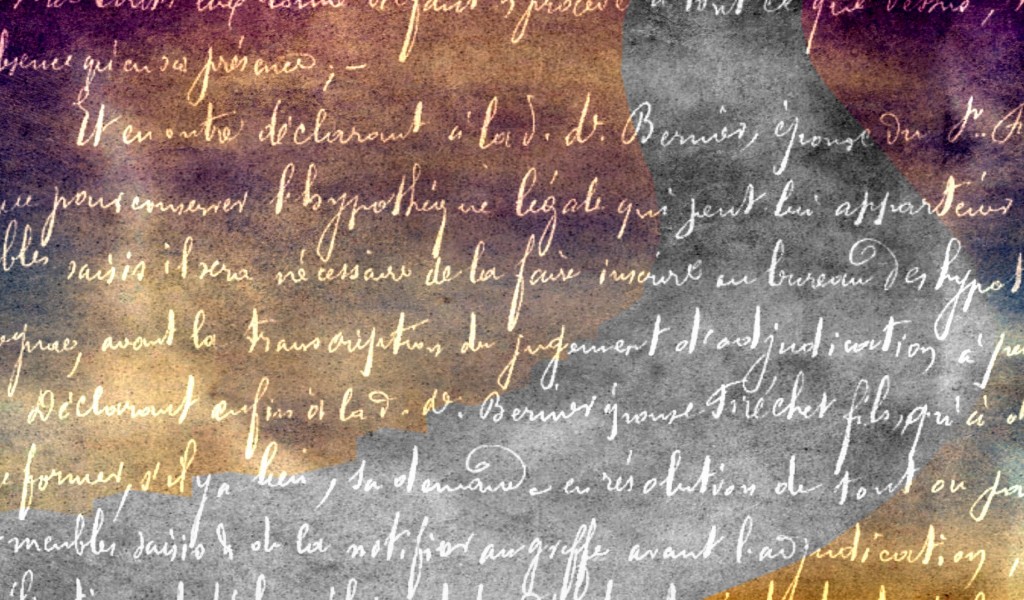 qu'en sa présence ; —
Et en outre déclarant à la d. de. Bernier, épouse du Sr.
pour conserver l'hypothèque légale qui peut lui appartenir
saisis il sera nécessaire de la faire inscrire au bureau des
avant la transcription du jugement d'adjudication, à
Déclarant enfin à la d. de. Bernier épouse Tiréchet fils, qu'à
former, s'il y a lieu, sa demande en résolution de tout ou
meubles saisis & de la notifier au greffe avant l'adjudication,